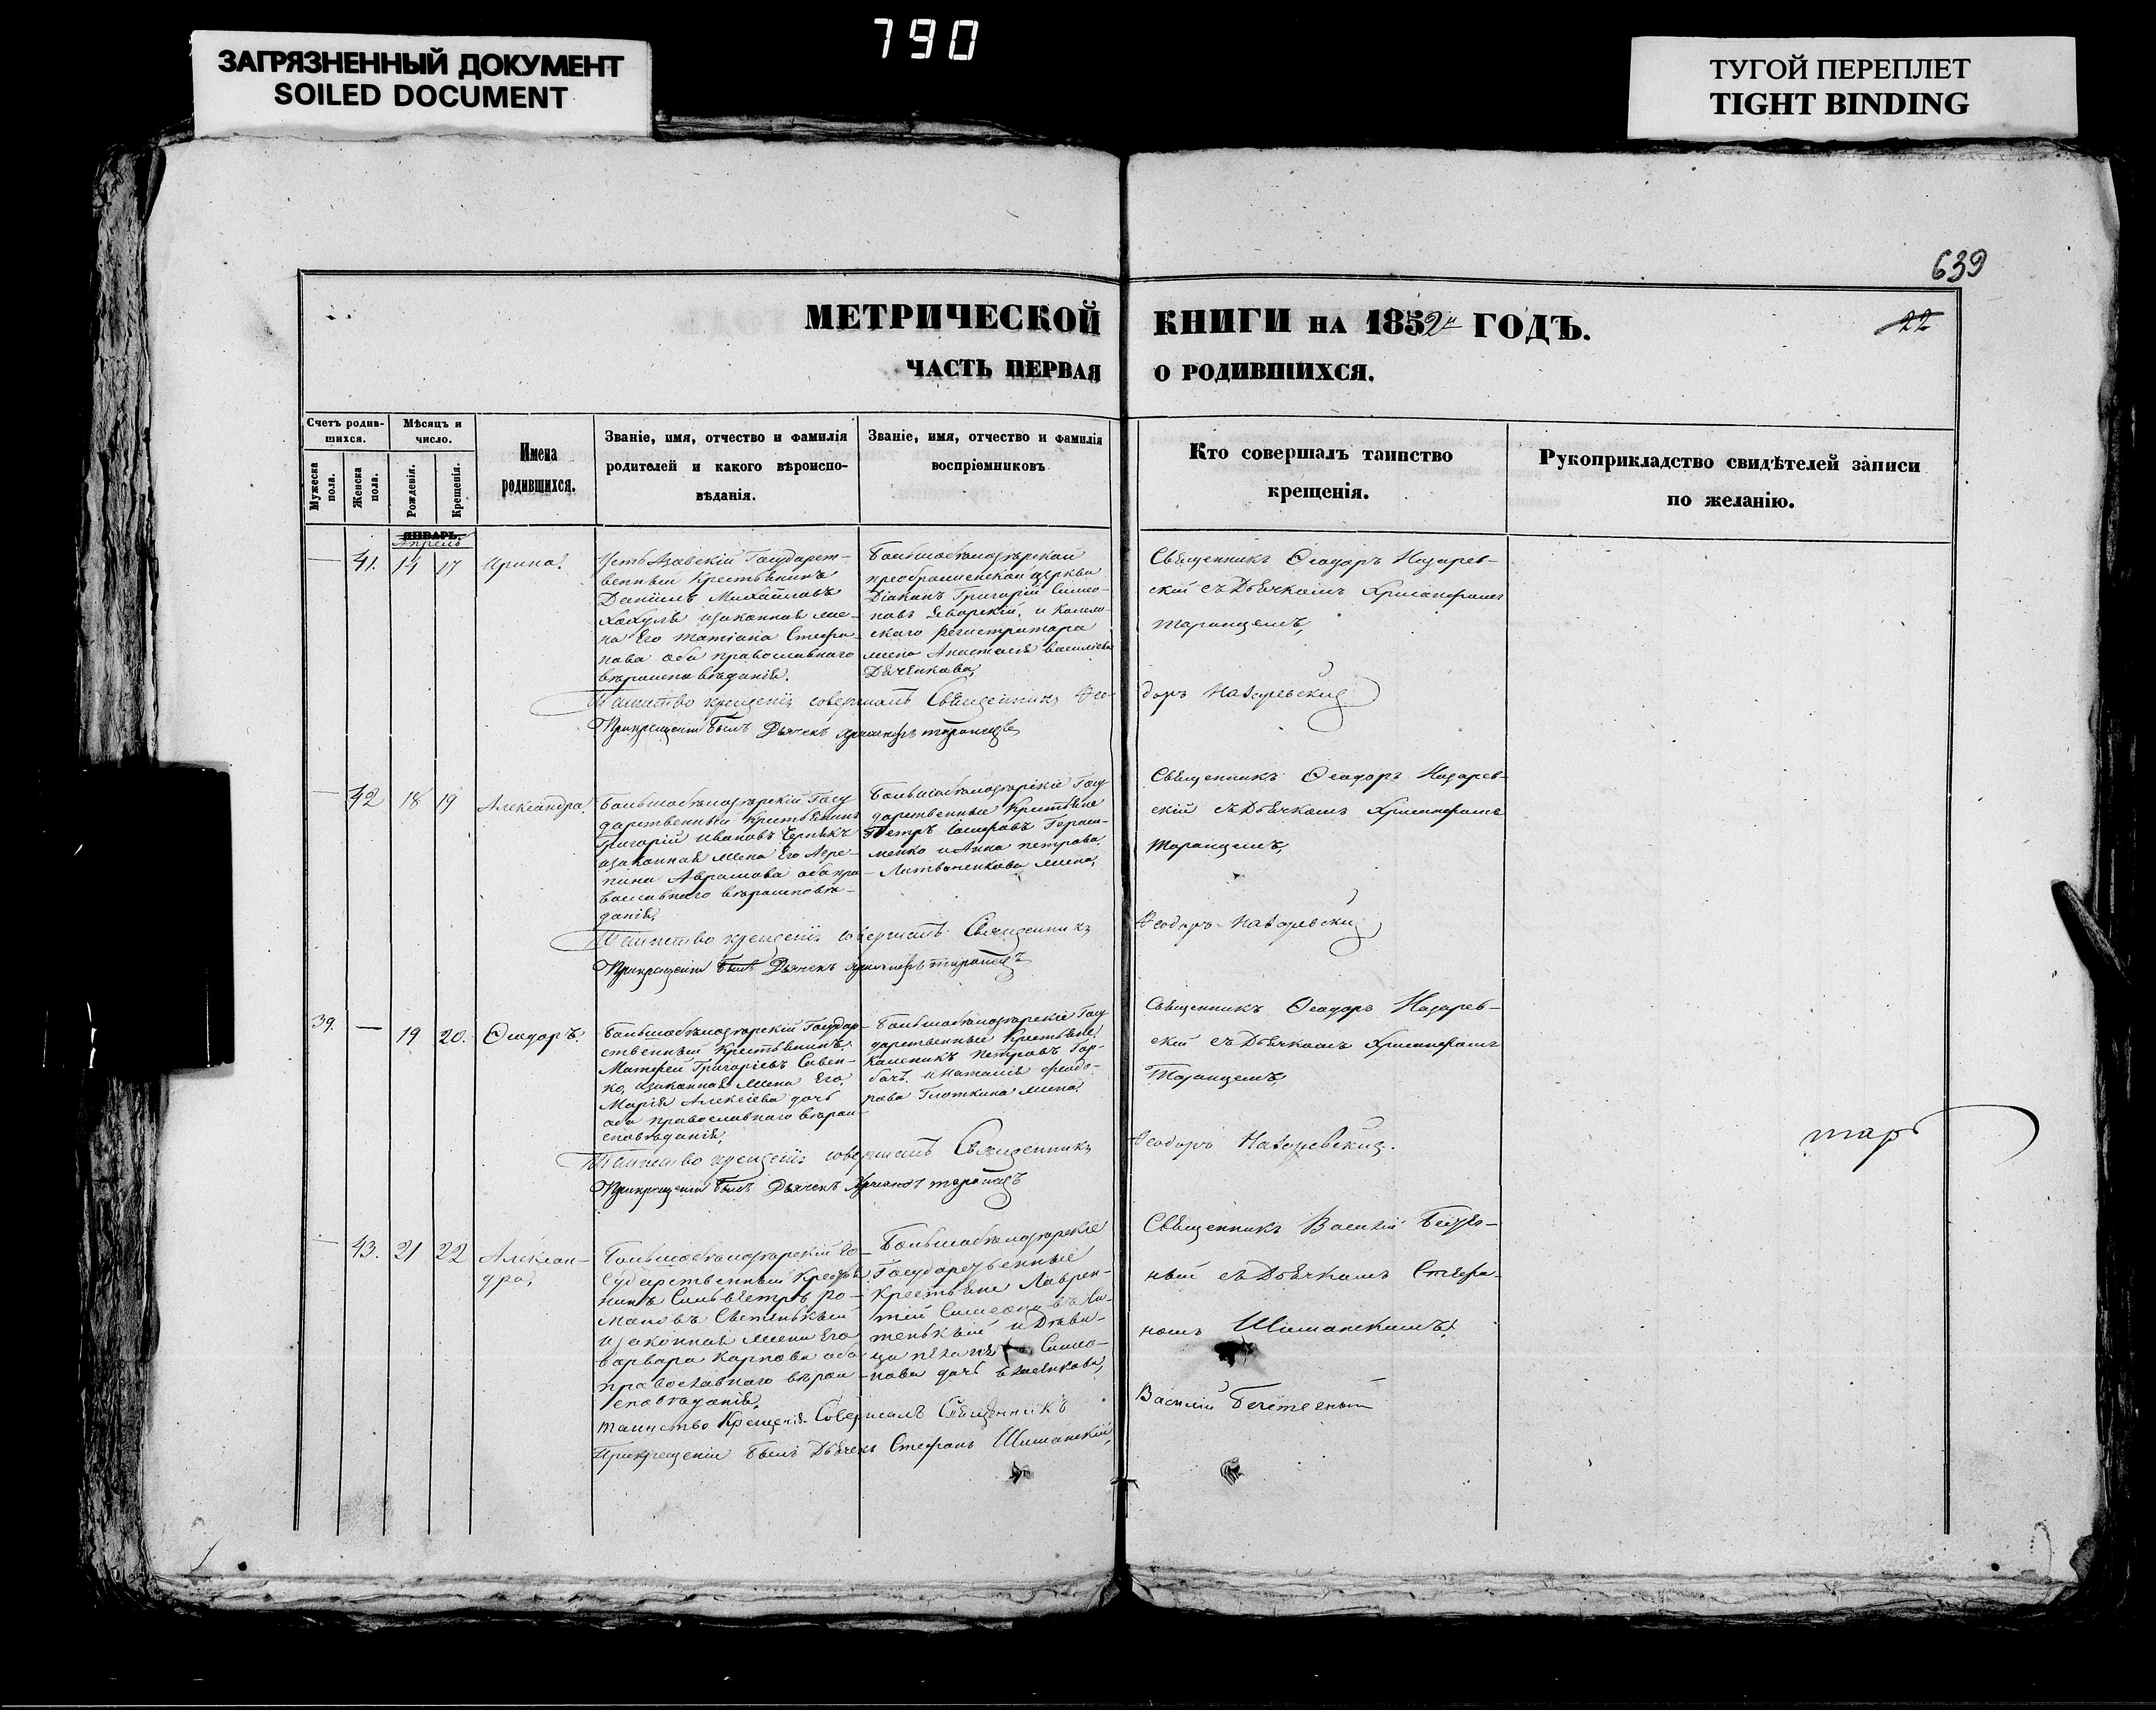 790
ЗАГРЯЗНЕННЫЙ ДОКУМЕНТ
SOILED DOCUMENT
ТУГОЙ ПЕРЕПЛЕТ
TIGHT BINDING
639
22
МЕТРИЧЕСКОЙ КНИГИ НА 1852й ГОДЪ.
ЧАСТЬ ПЕРВАЯ О РОДИВШИХСЯ.
Счетъ родив-
шихся.
Мужеска
пола.
Женска
пола.
Мѣсяцъ и
число.
Рожденія.
Крещенія.
Имена
родившихся.
Званіе, имя, отчество и фамилія
родителей и какого вѣроиспо-
вѣданія.
Званіе, имя, отчество и фамилія
воспріемниковъ
Кто совершалъ таинство
крещенія.
Рукоприкладство свидѣтелей записи
по желанію.
ЯНВАРЬ.
Апрель
— 41. 14 17 Ирина.
Государст-
венный Крестьянинъ
Даніилъ Михайловъ
изаконная же-
на Его Татіана Стефа-
нова оба православнаго
вѣроисповѣданія.
Большебѣлозѣрской
преображенской церкви
Діаконъ Григорій Симео-
новъ Яворскій, и
Регистратора
жена Анастасія василіева
Дяченкова,
Священникъ Ѳеодоръ Назарев-
скій съ Дьячкомъ
Таранцемъ,
Таинство крещенія совершалъ Священникъ Ѳео-
доръ Назаревскій
При крещеніи былъ Дьячекъ
— 42 18 19 Александра.
Большебѣлозѣрскій Госу
дарственный Крестьянинъ
Григорій Ивановъ
изаконная жена Его Агре-
пина Аврамова оба пра-
вославнаго вѣроисповѣ-
данія,
Большебѣлозѣрскіе Госу
дарственные Крестьяне
Петръ
менко и Анна петрова
Литвиненкова жена,
Священникъ Ѳеодоръ Назарев-
скій съ Дьячкомъ
Таранцемъ,
Таинство крещенія совершалъ Священникъ
Ѳеодоръ Назаревскій
При крещеніи былъ Дьячекъ
39. — 19 20. Ѳеодоръ.
Большебѣлозѣрскій Государ-
ственный Крестьянинъ
Матфей Григоріевъ Савен-
ко, изаконная жена Его,
Марія Алексіева дочь
оба православнаго вѣрои-
сповѣданія,
Большебѣлозѣрскіе Госу
дарственные Крестьяне
Каленикъ Петровъ Гор-
бачъ, и Наталія феодо-
рова жена
Священникъ Ѳеодоръ Назарев-
скій съ Дьячкомъ
Таранцемъ
Таинство крещенія совершалъ Священникъ
Ѳеодоръ Назаревскій.
При крещеніи былъ Дьячекъ
мар
— 43. 21 22 Алексан-
дра,
Большебѣлозѣрскій Го-
сударственный Крестья
нинъ Сильвестръ Ро-
мановъ
изаконная жена Его
Варвара Карпова оба
православнаго вѣрои
сповѣданія,
Большебѣлозѣрскіе
Государственные
Крестьяне Лаврен-
тій Симеоновъ
и Дѣви-
ца Симео-
нова дочь
Священникъ Василій
съ Дьячкомъ Стефа-
номъ Шиманскимъ,
Таинство Крещенія Совершалъ Священникъ
Василій
При крещеніи былъ Дьячекъ Стефанъ Шиманскій,